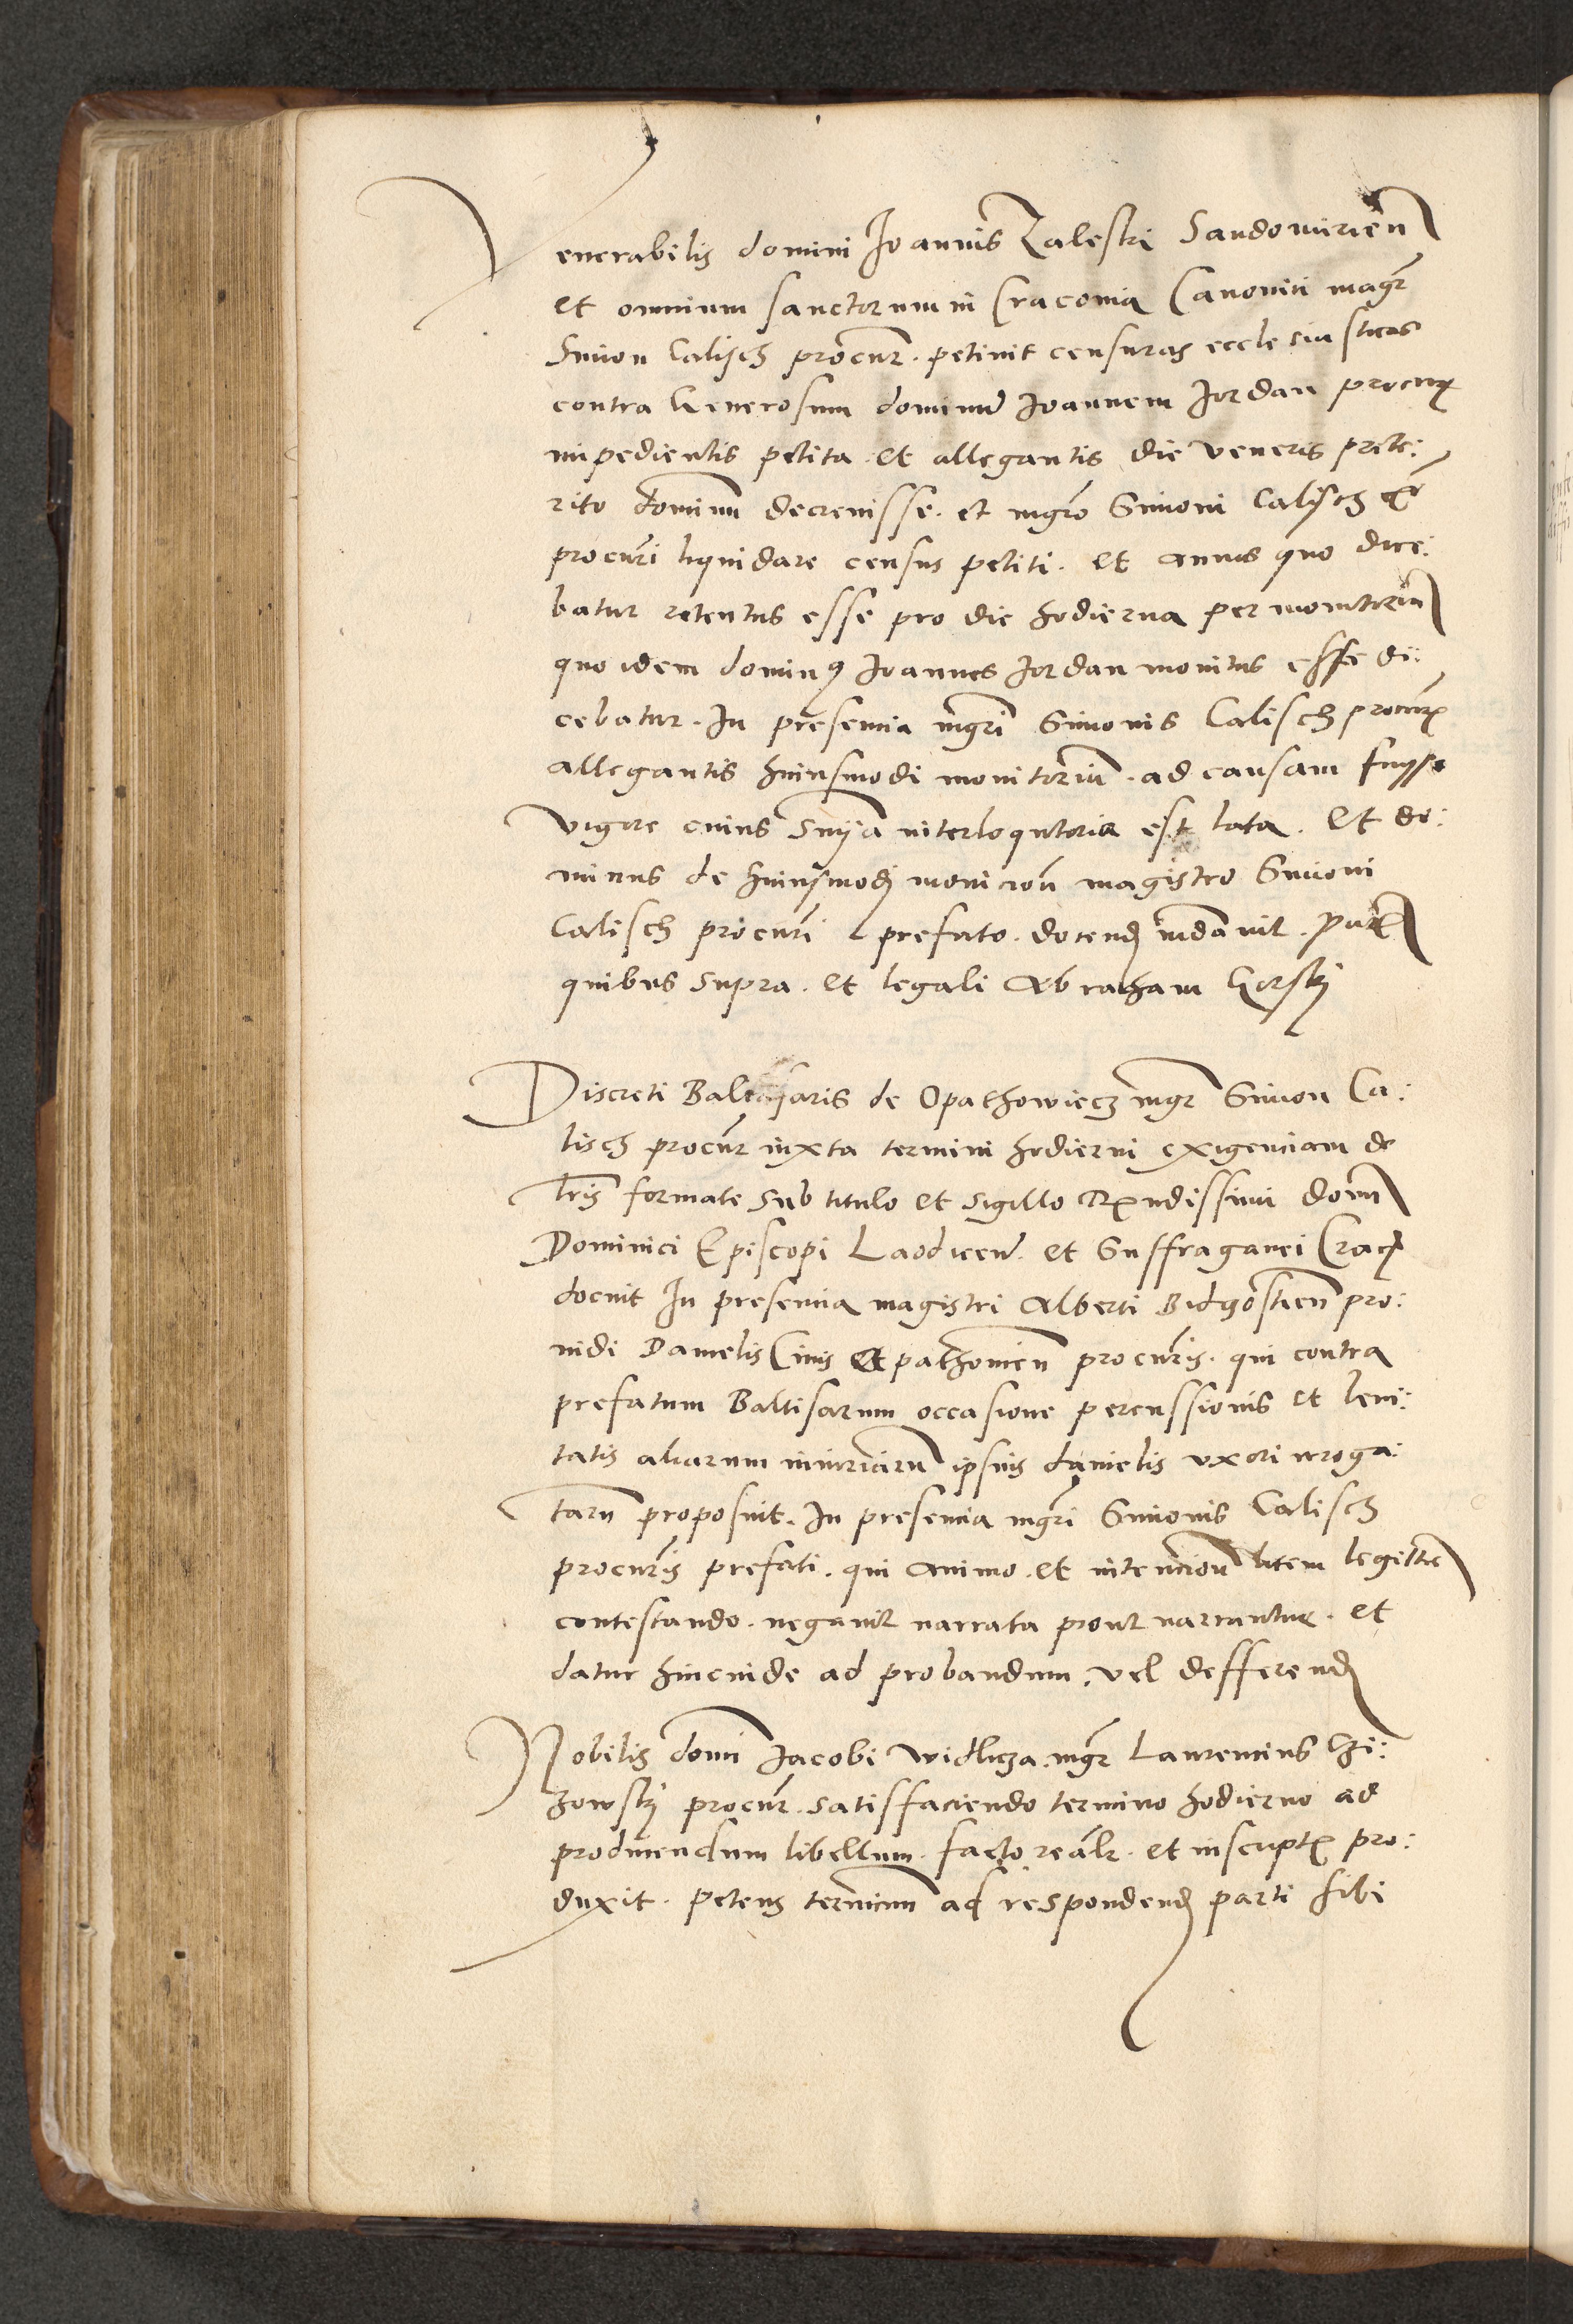 Venerabilis domini Joannis Zaleski Sandomirien
et omnium sanctorum in Cracovia Canonici magr
Simon Calisch procur. petivit censuras ecclesiasticas
contra Generosum dominum Joannem Jordan procur
impedientis petita et allegantis die veneris prete:
rito dominum decrevisse. et mgro Simoni Calisch
procuri liquidare census petiti. et annus quo dice:
batur retentus esse pro die hodierna per monitorium
quo idem dominus Joannes Jordan monitus esse di:
cebatur. In presencia mgri Simonis Calisch procur
allegantis huiusmodi monitorium. ad causam fuisse
vigore cuius snia interloqutoria est lata. Et do:
minus de huiusmodi monicion magistro Simoni
Calisch procuri prefato. docend mdavit. pntibus
quibus supra. et legali Abraham Gorski
Discreti Baltazaris de Opathowiecz mgr Simon Ca:
lisch procur iuxta termini hodierni exigenciam de
lris formate sub titulo et sigillo Rndissimi domi
Dominici Episcopi Laodicen. et Suffraganei Crac
docuit In presencia magistri Alberti Bidgostien pro:
vidi Danielis Civis Opathovien procuris. qui contra
prefatum Baltisarum occasione percussionis et levi:
tatis aliarum iniuriarum ipsius danielis uxori irroga:
tarum proposuit. In presencia mgri Simonis Calisch
procuris prefati. qui animo. et intencion litem legittime
contestando. negavit narrata prout narrantur. et
datur hincinde ad probandum. vel defferend
Nobilis domi Jacobi Widlicza. mgr Laurencius
zowski procur. satisfaciendo termino hodierno ad
producendum libellum. facto realr. et inscript pro:
duxit. petens terminum ad respondend parti sibi